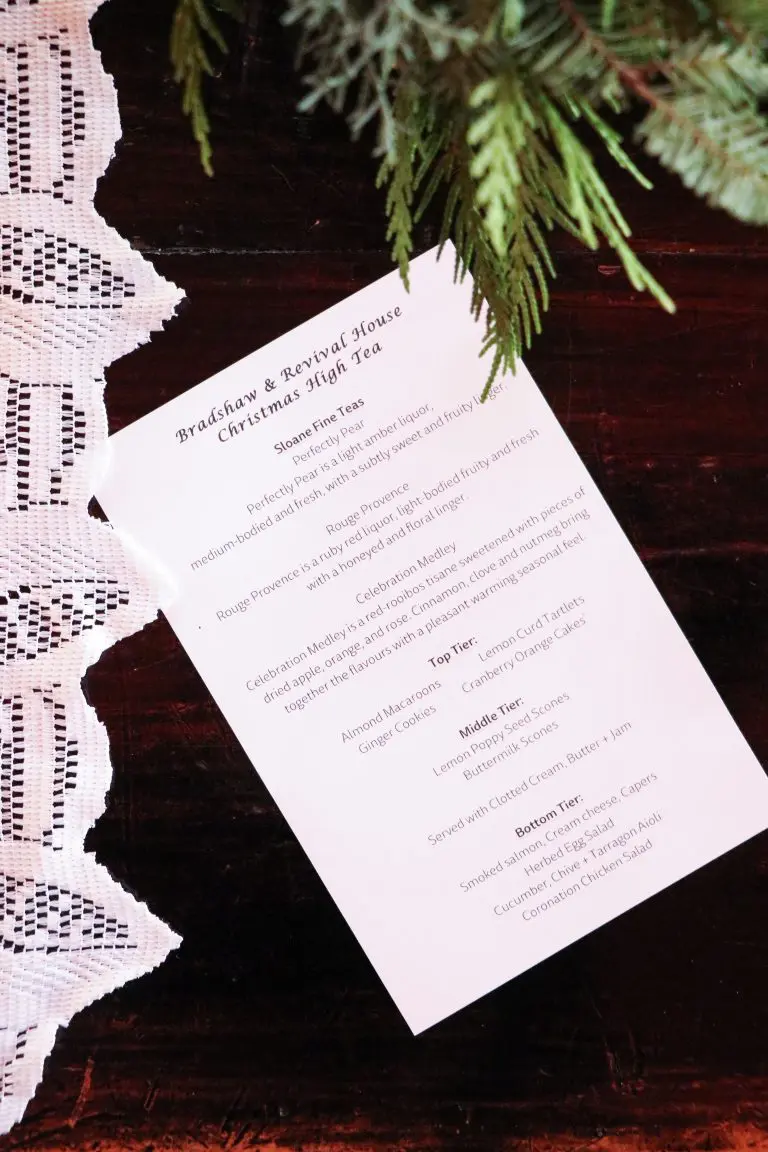 Bradshaw & Revival House
Christmas High Tea
Sloane Fine Teas
Perfectly Pear
Perfectly Pear is a light amber liquor,
medium-bodied and fresh, with a subtly sweet and fruity linger.
Rouge Provence
Rouge Provence is a ruby red liquor, light-bodied fruity and fresh
with a honeyed and floral linger.
Celebration Medley
Celebration Medley is a red-rooibos tisane sweetened with pieces of
dried apple, orange, and rose. Cinnamon, clove and nutmeg bring
together the flavours with a pleasant warming seasonal feel.
Top Tier:
Almond Macaroons Lemon Curd Tartlets
Ginger Cookies Cranberry Orange Cakes
Middle Tier:
Lemon Poppy Seed Scones
Buttermilk Scones
Served with Clotted Cream, Butter + Jam
Bottom Tier:
Smoked salmon, Cream cheese, Capers
Herbed Egg Salad
Cucumber, Chive + Tarragon Aioli
Coronation Chicken Salad